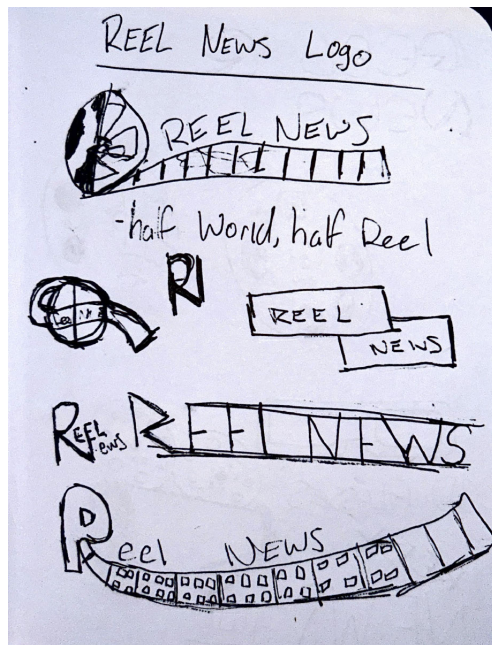 REEL NEWS Logo
REEL NEWS
-half World, half Reel
RN
REEL
NEWS
REEL
News
REEL NEWS
Reel NEWS